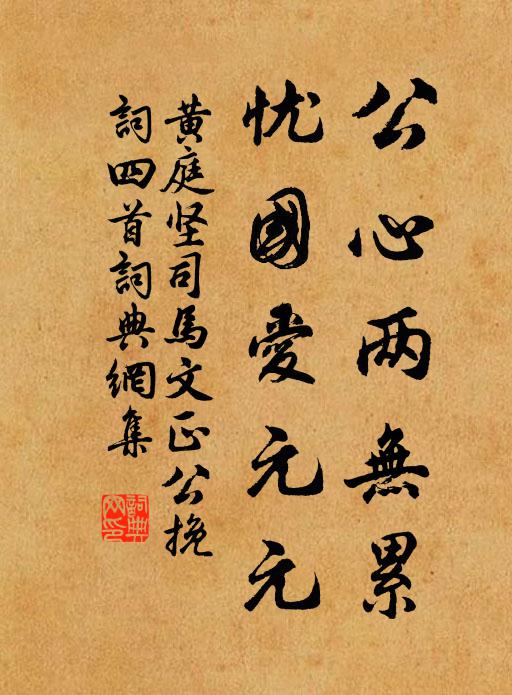 公心两無累
忧國愛元元
黄庭坚司馬文正公挽
詞四首詞典網集
詞典網印